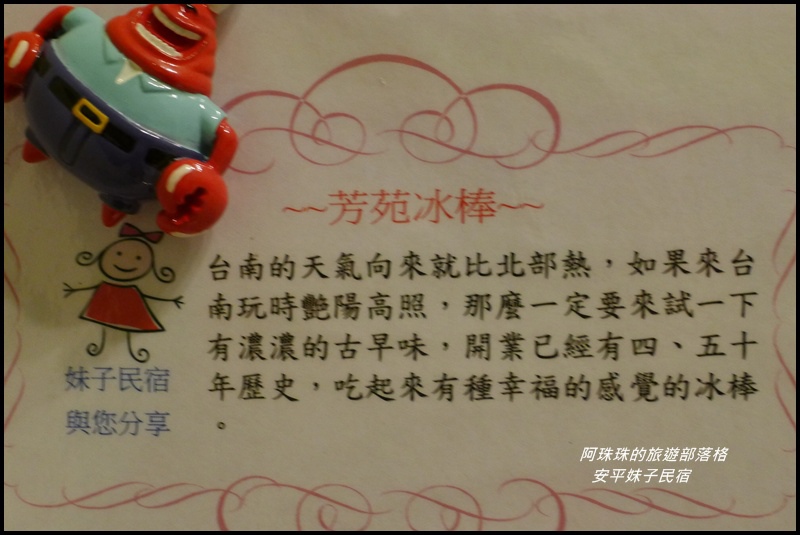 ~~芳苑冰棒~~
台南的天氣向來就比北部熱，如果來台
南玩時艷陽高照，那麼一定要來試一下
有濃濃的古早味，開業已經有四、五十
年歷史，吃起來有種幸福的感覺的冰棒
。
妹子民宿
與您分享
阿珠珠的旅遊部落格
安平妹子民宿